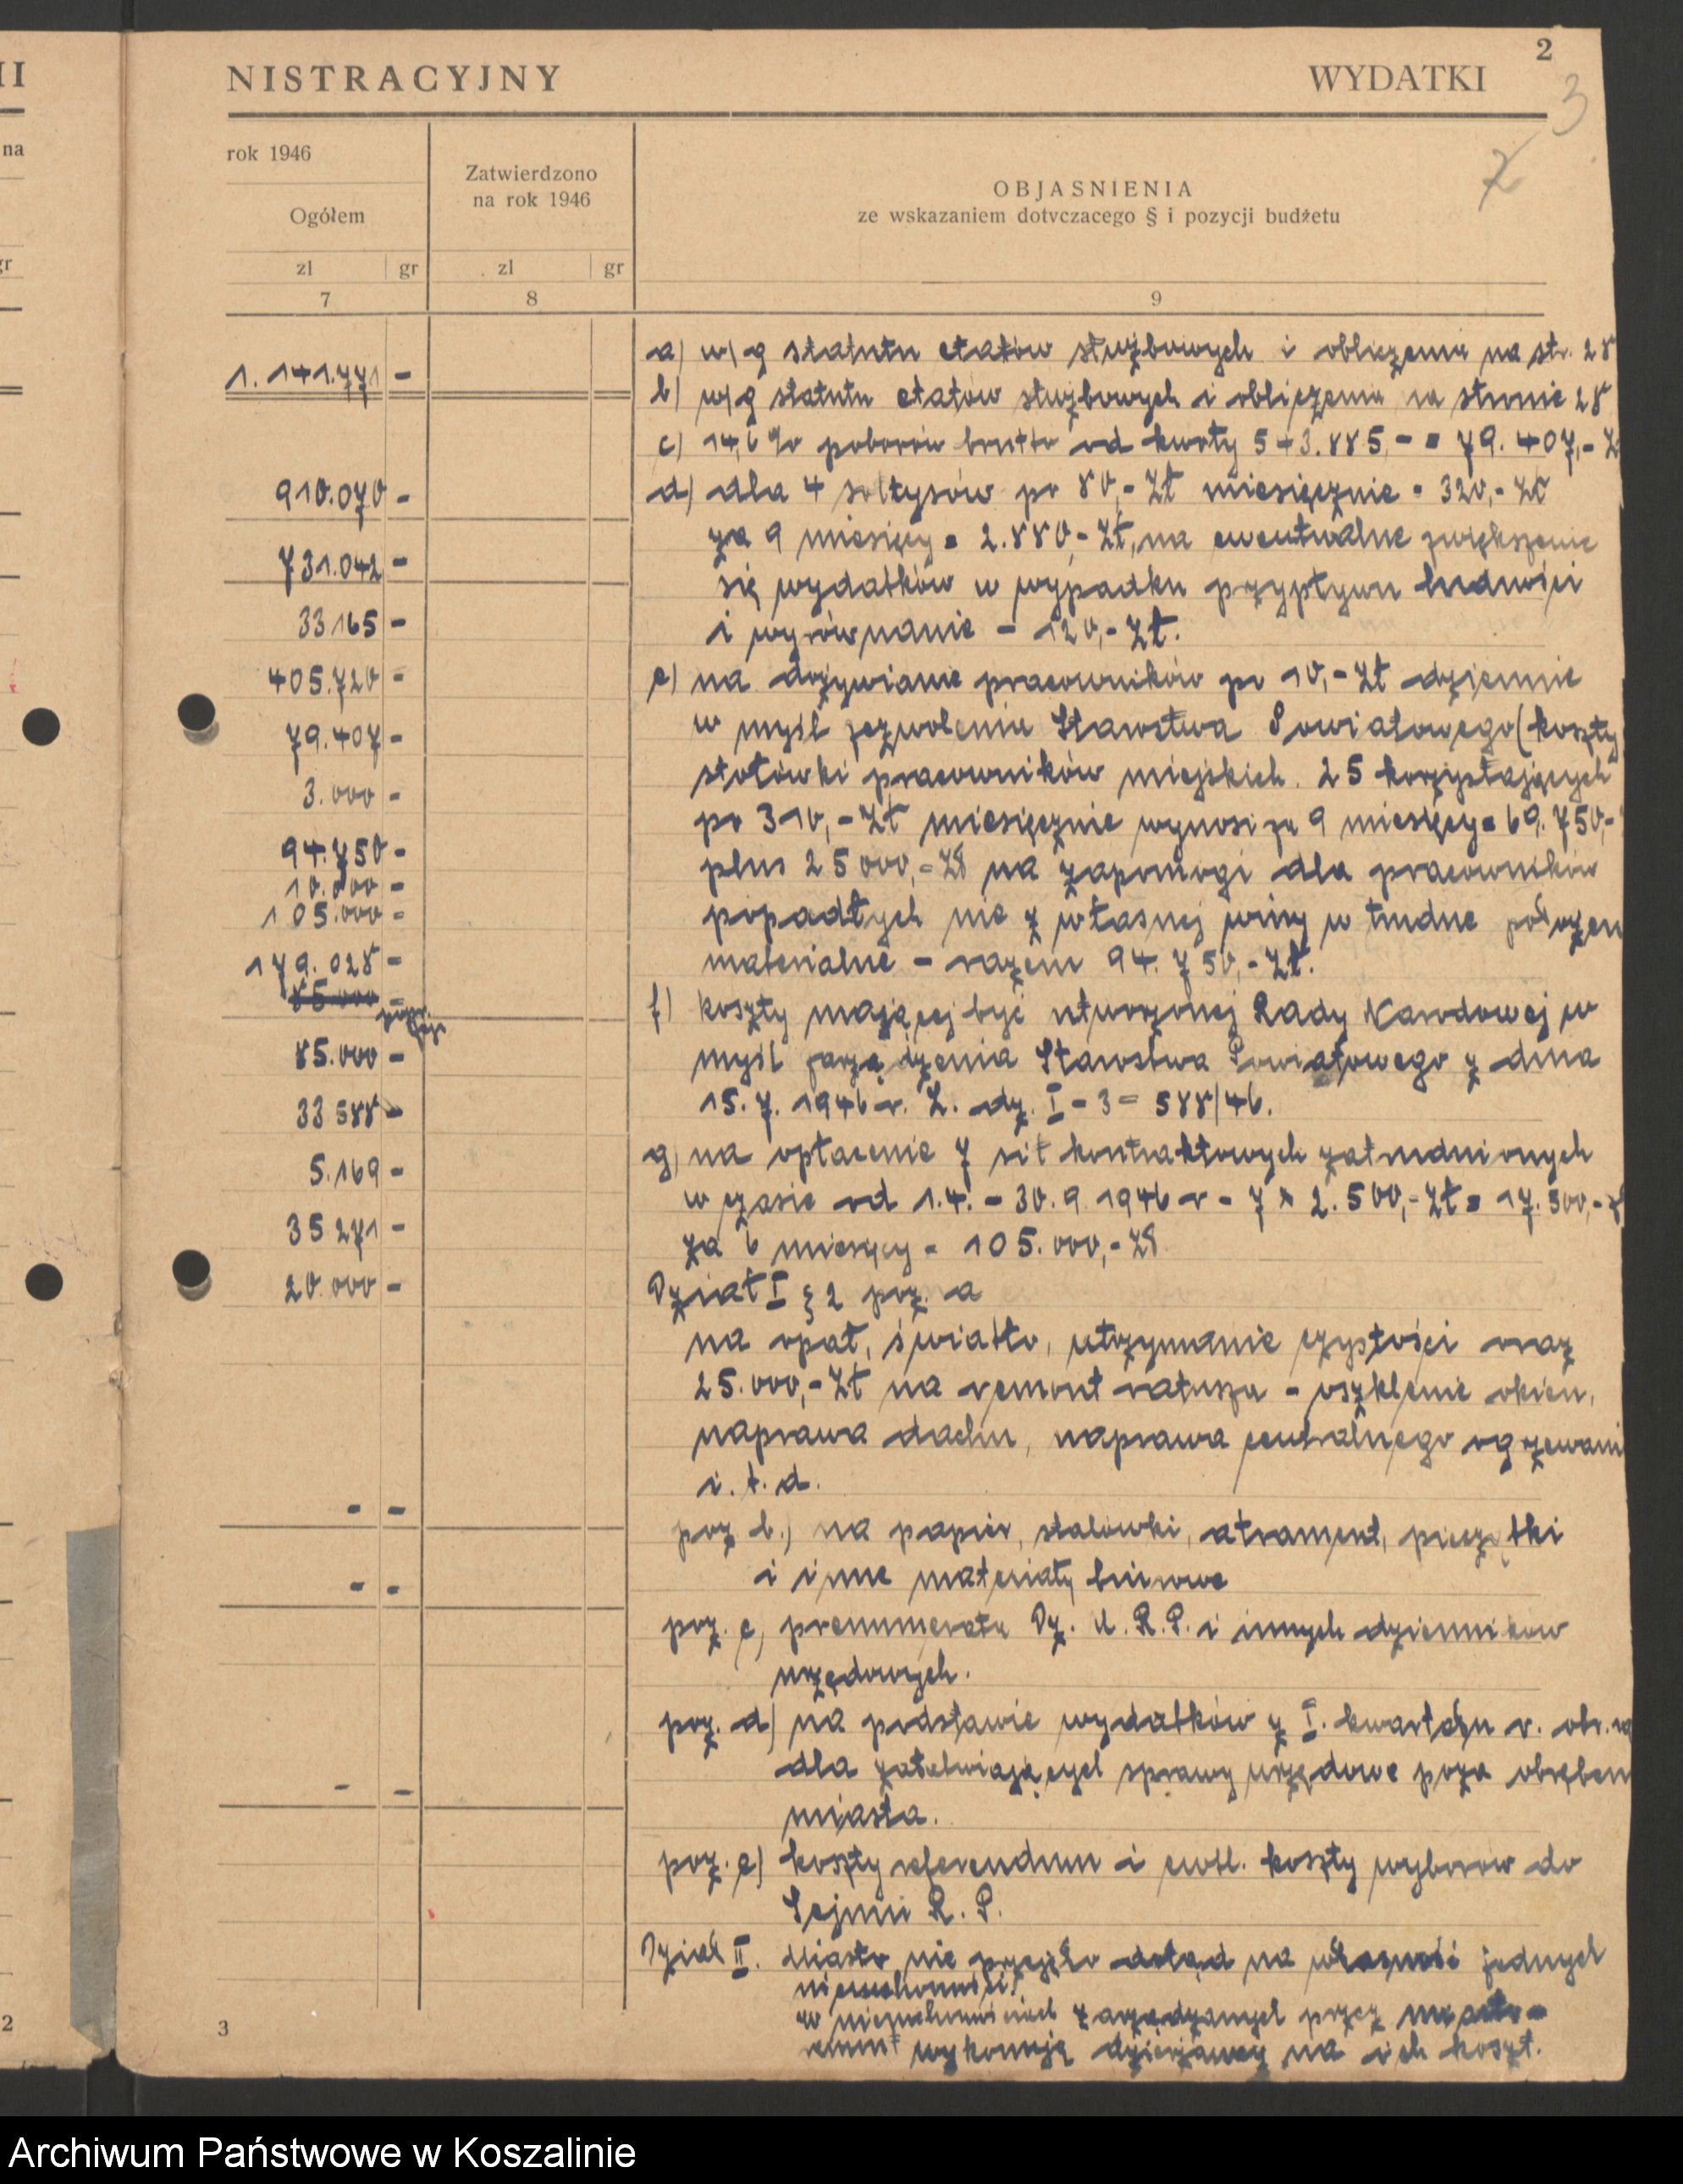 II
na
gr
2
NISTRACYJNY
WYDATKI
2
3
2
rok 1946
Ogółem
Zatwierdzono
na rok 1946
OBJASNIENIA
ze wskazaniem dotyczacego § i pozycji budżetu
zl gr zl gr
7 8 9
1.141.771 -
910.070 -
731.042 -
33165 -
405.720 -
79.407 -
3.000 -
94.750 -
10.000 -
105.000 -
179.028 -
85.000 -
85.000 -
33588 -
5.169 -
35271 -
20.000 -
- -
- -
- -
a) w/g statutu etatów służbowych i obliczenia na str. 28
b) w/g statutu etatów służbowych i obliczenia na stronie 28
c) 14,6 % poborów brutto od kwoty 543.885,- = 79.407,- Zł
d) dla 4 sołtysów po 80,- Zł miesięcznie = 320,- Zł
za 9 miesięcy = 2.880,- Zł, na ewentualne zwiększenie
się wydatków w wypadku przypływu ludności
i wyrównanie - 120,- Zł.
e) na dożywianie pracowników po 10,- Zł dziennie
w myśl zezwolenia Starostwa Powiatowego (koszty
stołówki pracowników miejskich. 25 korzystających
po 310,- Zł miesięcznie wynosi za 9 miesięcy = 69.750,-
plus 25000,- Zł na zapomogi dla pracowników
popadłych nie z własnej winy w trudne położen
materialne - razem 94.750,- Zł.
f) koszty mającej być utworzonej Rady Narodowej w
myśl zarządzenia Starostwa Powiatowego z dnia
15.7.1946 r. L. dz. I - 3 = 588/46.
g) na opłacenie 7 sił kontraktowych zatrudnionych
w czasie od 1.4. - 30.9.1946 r - 7 x 2.500,- Zł = 17.500,- Zł
za 6 miesięcy = 105.000,- Zł
Dział I § 2 poz. a
na opał, światło, utrzymanie czystości oraz
25.000,- Zł na remont ratusza - oszklenie okien,
naprawa dachu, naprawa centralnego ogrzewani
i.t.d.
poz b.) na papier, stalówki, atrament, pieczątki
i inne materiały biurowe
poz. c) prenumerata Dz. U. R.P. i innych dzienników
urzędowych.
poz. d) na podstawie wydatków z I. kwartału r. obr.
dla załatwiających sprawy urzędowe poza obrębem
miasta.
poz. e) koszty referendum i ewtl. koszty wyborów do
Sejmu R. P.
Dział II. Miasto nie przejęło dotąd na własność żadnych
nieruchomości.
w nieruchomościach zarządzanych przez miasto -
remont wykonują dzierżawcy na ich koszt.
3
Archiwum Państwowe w Koszalinie